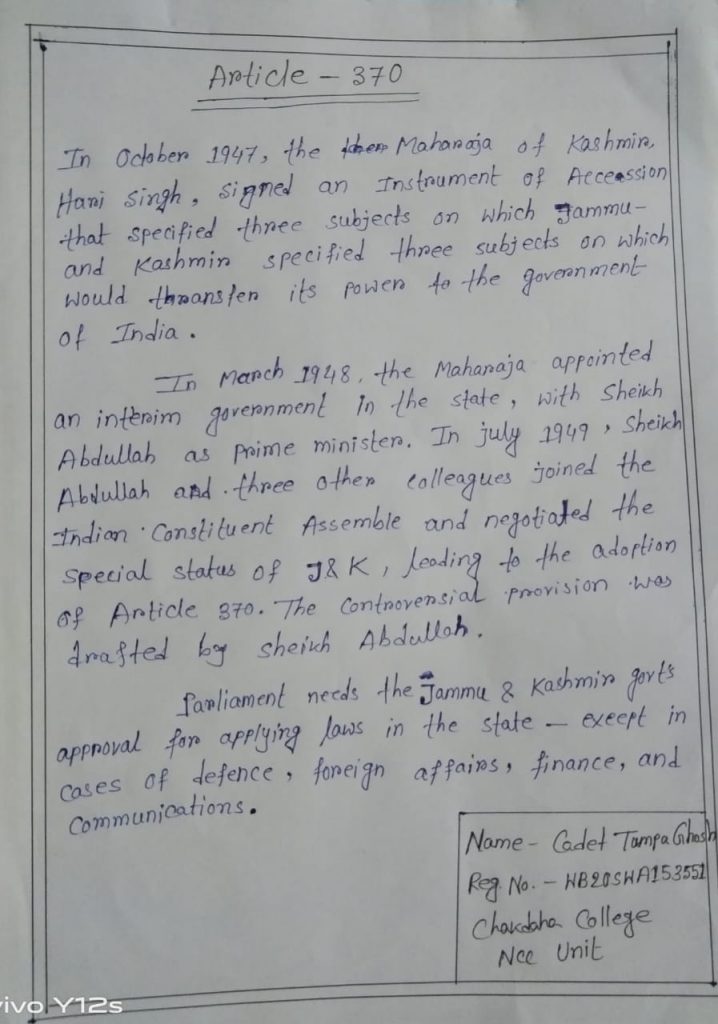 Article - 370
In October 1947, the then Maharaja of Kashmir,
Hari Singh, signed an Instrument of Accession
that specified three subjects on which Jammu-
and Kashmir specified three subjects on which
would thransfer its power to the government
of India.
In March 1948, the Maharaja appointed
an interim government in the state, with Sheikh
Abdullah as prime minister. In july 1949, Sheikh
Abdullah and three other colleagues joined the
Indian Constituent Assemble and negotiated the
special status of J&K, leading to the adoption
of Article 370. The controversial provision was
drafted by sheikh Abdullah.
Parliament needs the Jammu & Kashmir govt's
approval for applying laws in the state - exeept in
cases of defence, foreign affairs, finance, and
communications.
Name - Cadet Tampa Ghosh
Reg. No. - WB20SWA153551
Chakdaha College
Ncc Unit
vivo Y12s